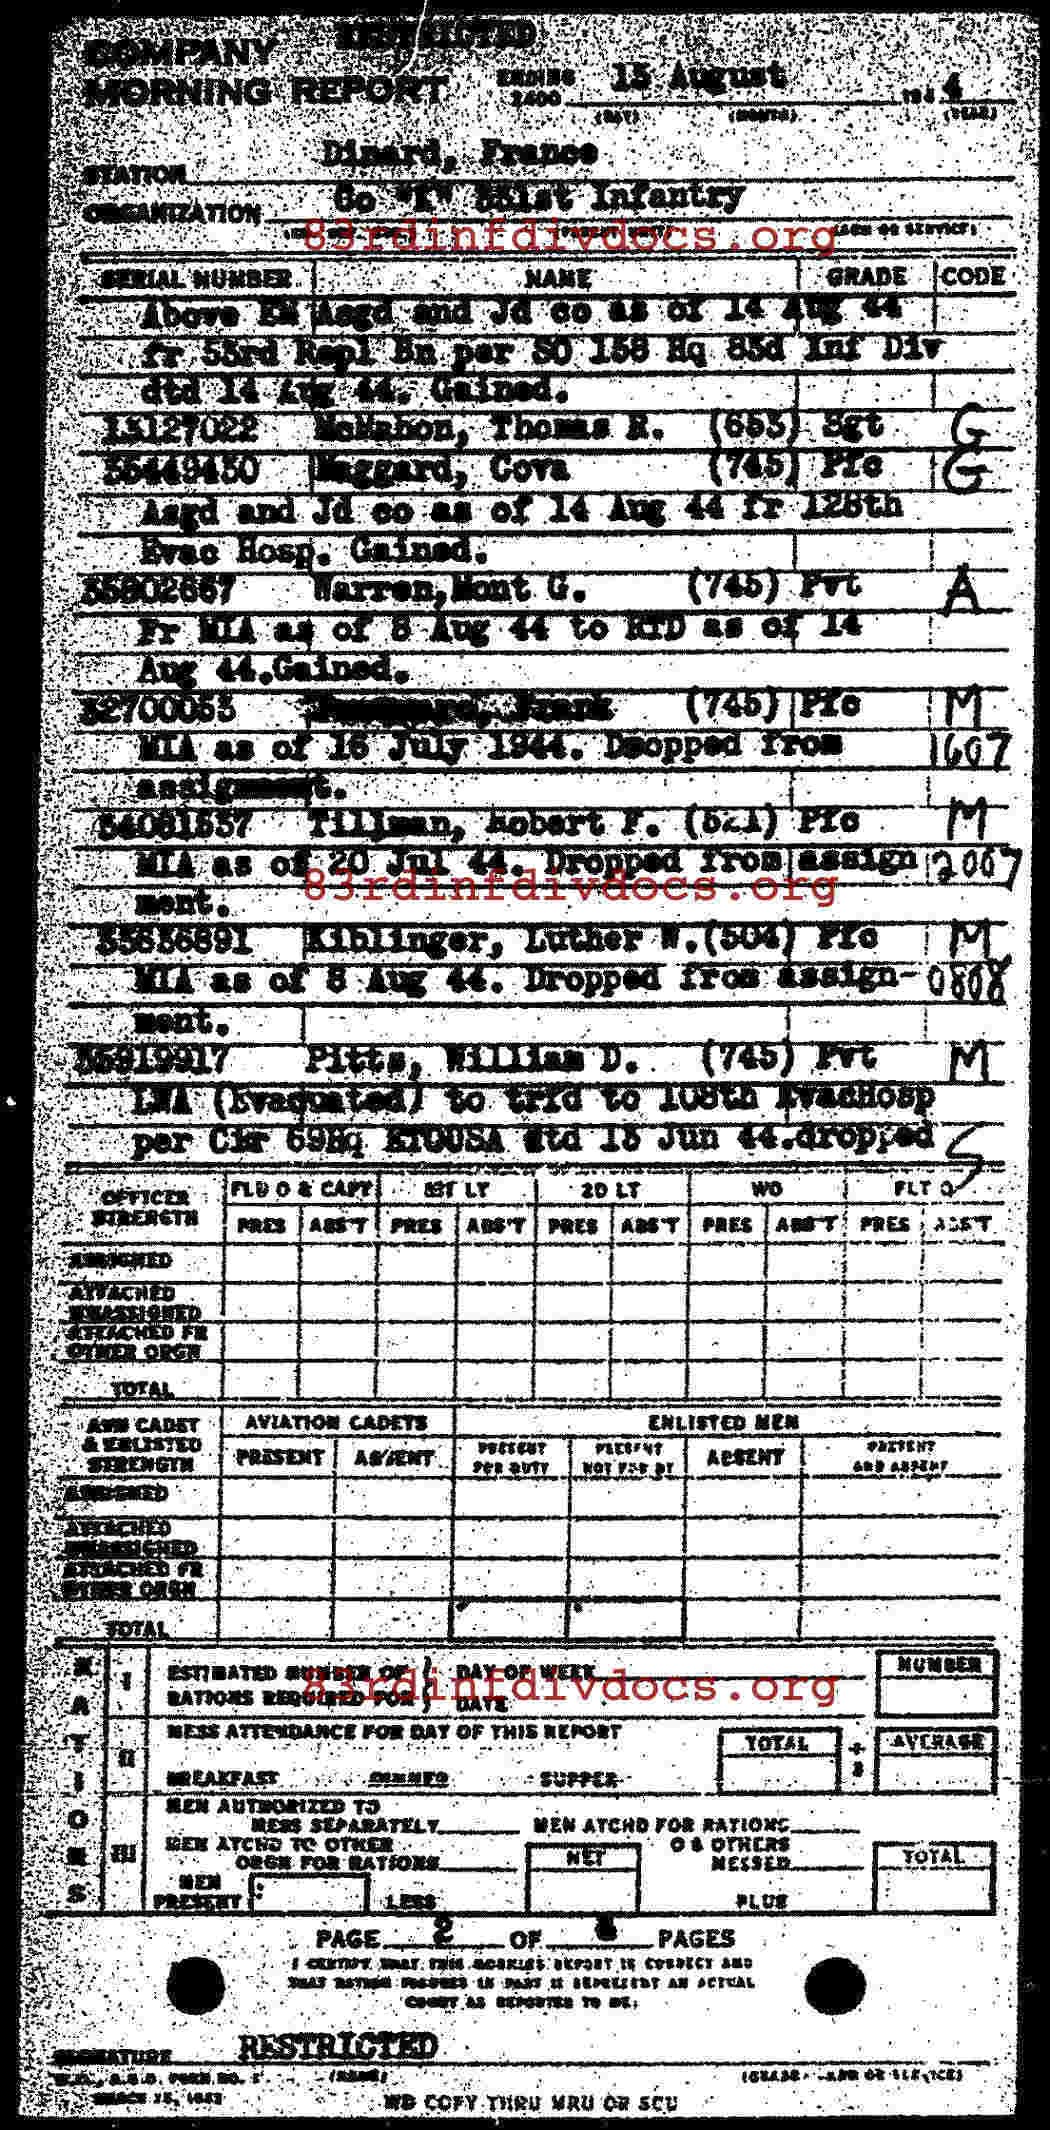 RESTRICTED
COMPANY
MORNING REPORT ENDING 2400 15 August 194 4
(DAY) (MONTH) (YEAR)
STATION Dinard, France
ORGANIZATION Co "I" 331st Infantry
83rdinfdivdocs.org
SERIAL NUMBER NAME GRADE CODE
Above EM Asgd and Jd co as of 14 Aug 44
fr 53rd Repl Bn per SO 158 Hq 83d Inf Div
dtd 14 Aug 44. Gained.
13127022 McMahon, Thomas R. (653) Sgt G
35449430 Haggard, Cova (745) Pfc G
Asgd and Jd co as of 14 Aug 44 fr 128th
Evac Hosp. Gained.
35902667 Warren, Mont G. (745) Pvt A
Fr MIA as of 8 Aug 44 to RTD as of 14
Aug 44. Gained.
32700053 Frank (745) Pfc M
MIA as of 16 July 1944. Dropped from 1607
assignment.
34081537 Tillman, Robert F. (521) Pfc M
MIA as of 20 Jul 44. Dropped from assign 2007
83rdinfdivdocs.org
ment.
33636891 Kiblinger, Luther W. (504) Pfc M
MIA as of 8 Aug 44. Dropped from assign- 0808
ment.
35919917 Pitts, William D. (745) Pvt M
LWA (Evacuated) to trfd to 108th EvacHosp
per Cir 69Hq ETOUSA dtd 13 Jun 44.dropped S
OFFICER STRENGTH FLD O & CAPT 1ST LT 2D LT WO FLT O
PRES ABS'T PRES ABS'T PRES ABS'T PRES ABS'T PRES ABS'T
ASSIGNED
ATTACHED UNASSIGNED
ATTACHED FR OTHER ORGN
TOTAL
AVN CADET & ENLISTED STRENGTH AVIATION CADETS ENLISTED MEN
PRESENT ABSENT PRESENT FOR DUTY PRESENT NOT FOR DY ABSENT PRESENT AND ABSENT
ASSIGNED
ATTACHED UNASSIGNED
ATTACHED FR OTHER ORGN
TOTAL
RATIONS
I ESTIMATED NUMBER OF RATIONS REQUIRED FOR DAY OF WEEK DATE NUMBER
83rdinfdivdocs.org
II MESS ATTENDANCE FOR DAY OF THIS REPORT TOTAL ÷ 3 AVERAGE
BREAKFAST DINNER SUPPER
III MEN AUTHORIZED TO MESS SEPARATELY MEN ATCHD FOR RATIONS
MEN ATCHD TO OTHER ORGN FOR RATIONS NET O & OTHERS MESSED TOTAL
MEN PRESENT LESS PLUS
PAGE 2 OF PAGES
I CERTIFY THAT THIS MORNING REPORT IS CORRECT AND
THAT RATION FIGURES IN PART II REPRESENT AN ACTUAL
COUNT AS REPORTED TO ME.
RESTRICTED
SIGNATURE
W.D., A.G.O. FORM NO. 1 (NAME) (GRADE - ARM OR SERVICE)
MARCH 15, 1943
WD COPY THRU MRU OR SCU